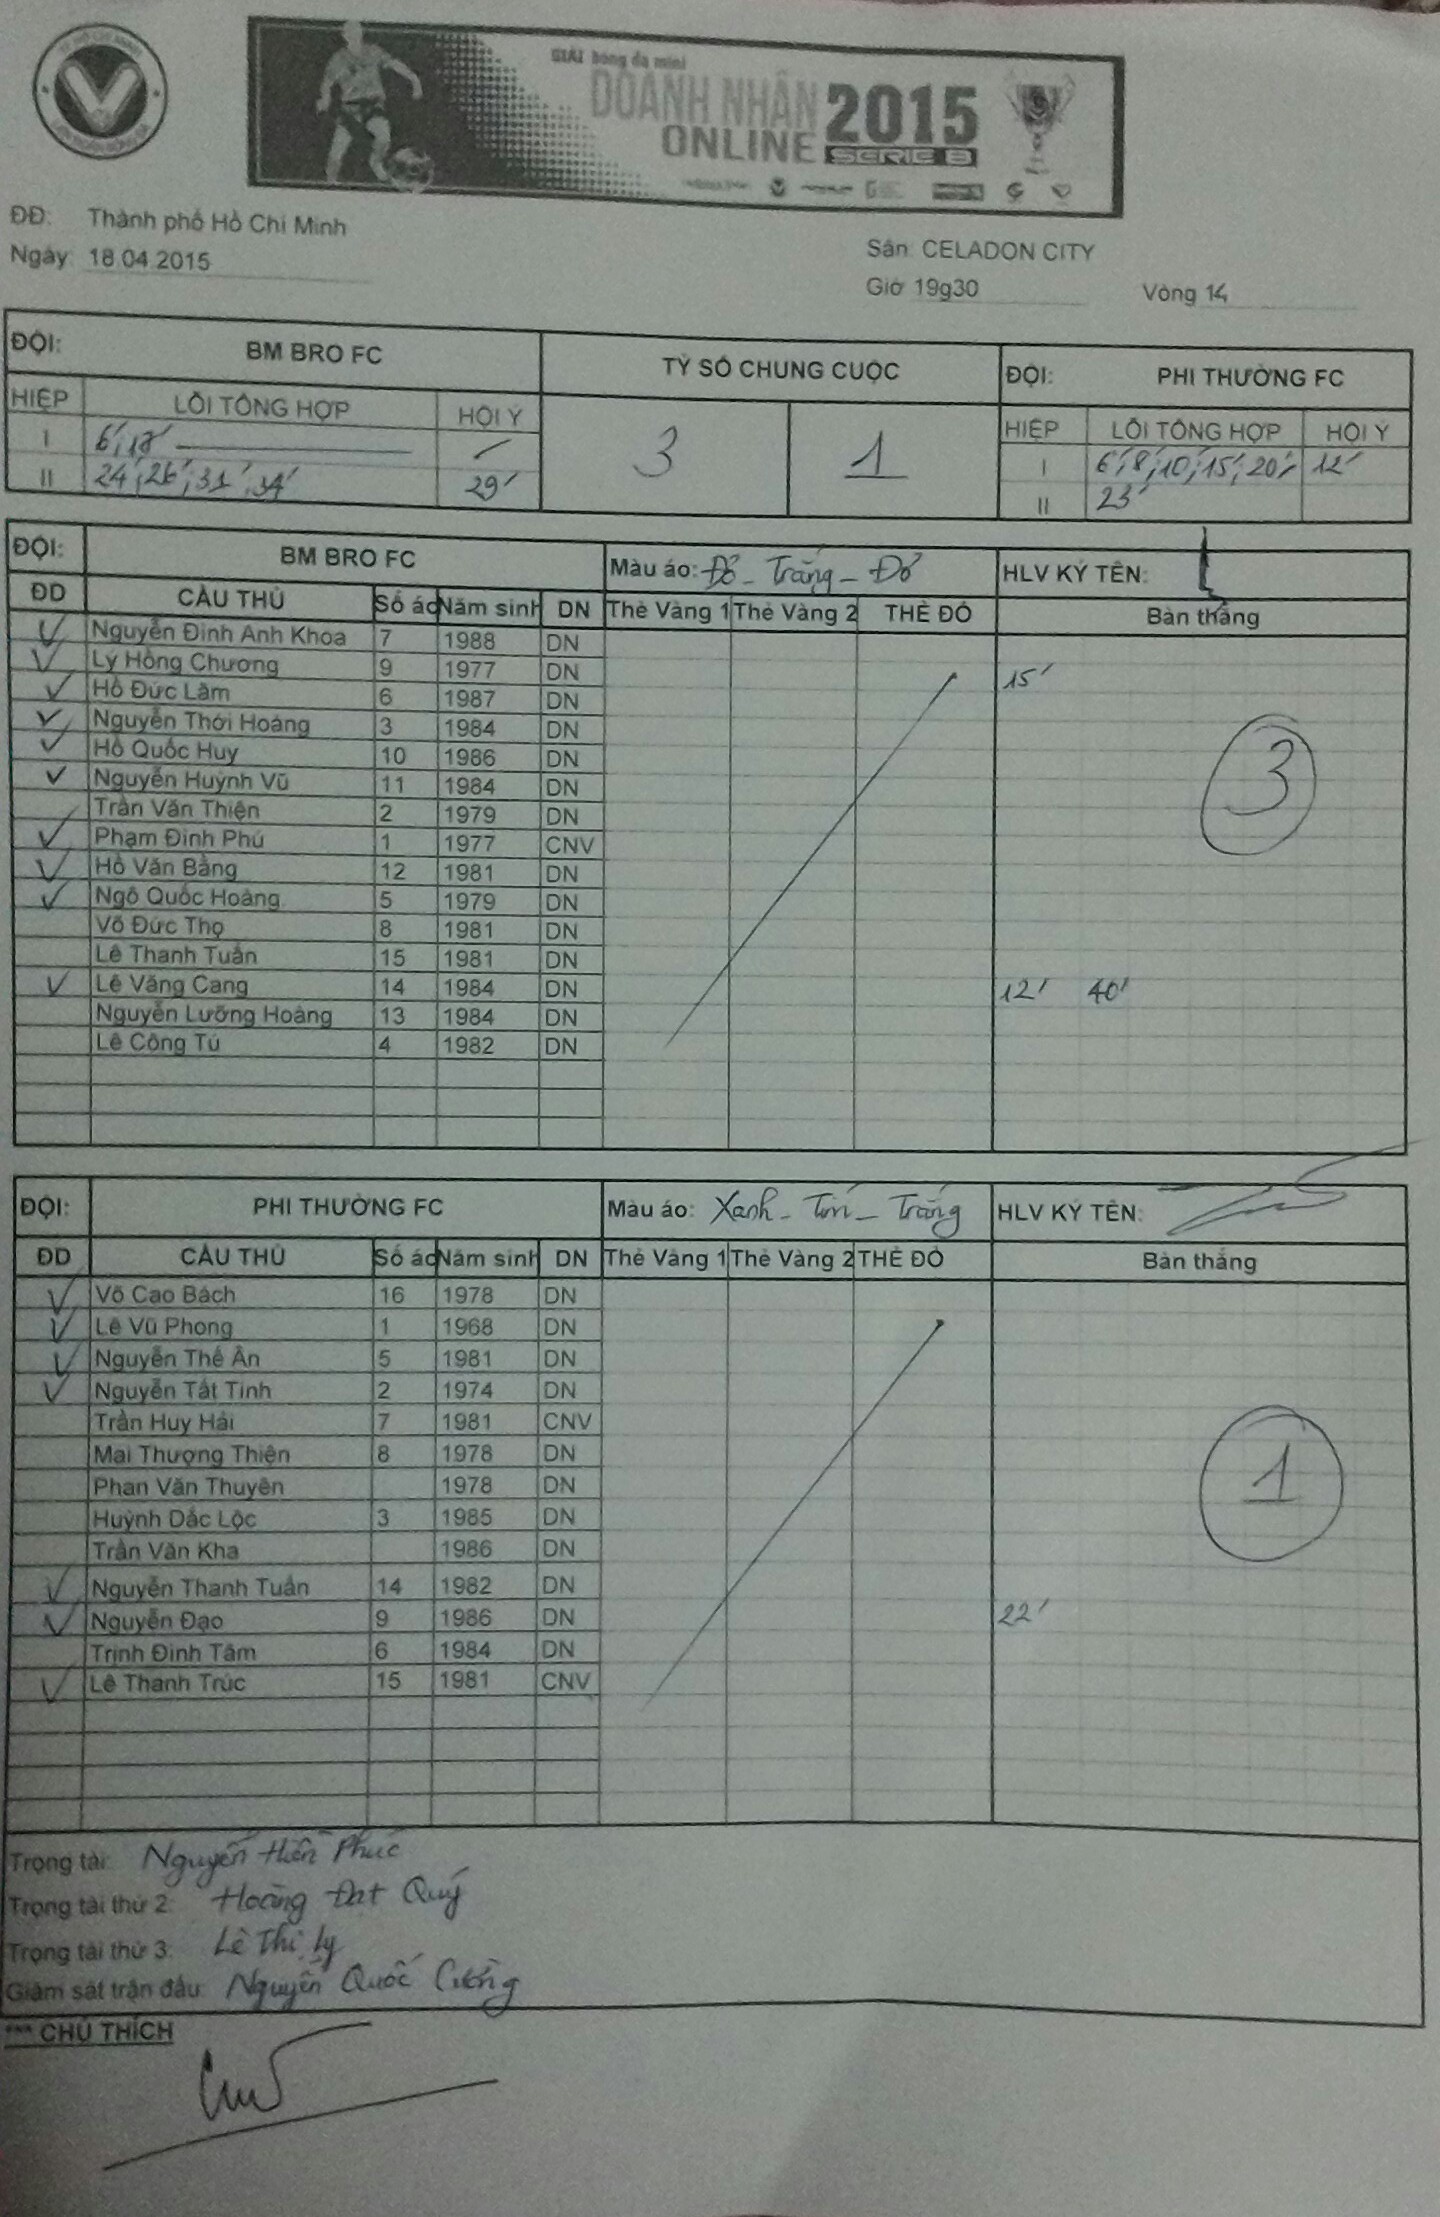 GIẢI bóng đá mini
DOANH NHÂN 2015
ONLINE SERIE B
ĐĐ: Thành phố Hồ Chí Minh
Sân: CELADON CITY
Ngày: 18.04.2015
Giờ 19g30 Vòng 14
ĐỘI: BM BRO FC TỶ SỐ CHUNG CUỘC ĐỘI: PHI THƯỜNG FC
HIỆP LỖI TỔNG HỢP HỘI Ý 3 1 HIỆP LỖI TỔNG HỢP HỘI Ý
I 6', 18' I 6', 8', 10', 15', 20' 12'
II 24', 26', 31', 34' 29' II 23'
ĐỘI: BM BRO FC Màu áo: Đỏ - Trắng - Đỏ HLV KÝ TÊN:
ĐD CẦU THỦ Số áo Năm sinh DN Thẻ Vàng 1 Thẻ Vàng 2 THẺ ĐỎ Bàn thắng
Nguyễn Đình Anh Khoa 7 1988 DN
Lý Hồng Chương 9 1977 DN 15'
Hồ Đức Lâm 6 1987 DN
Nguyễn Thới Hoàng 3 1984 DN
Hồ Quốc Huy 10 1986 DN 3
Nguyễn Huỳnh Vũ 11 1984 DN
Trần Văn Thiện 2 1979 DN
Phạm Đình Phú 1 1977 CNV
Hồ Văn Bằng 12 1981 DN
Ngô Quốc Hoàng 5 1979 DN
Võ Đức Thọ 8 1981 DN
Lê Thanh Tuấn 15 1981 DN
Lê Văng Cang 14 1984 DN 12' 40'
Nguyễn Lưỡng Hoàng 13 1984 DN
Lê Công Tú 4 1982 DN
ĐỘI: PHI THƯỜNG FC Màu áo: Xanh - Tím - Trắng HLV KÝ TÊN:
ĐD CẦU THỦ Số áo Năm sinh DN Thẻ Vàng 1 Thẻ Vàng 2 THẺ ĐỎ Bàn thắng
Võ Cao Bách 16 1978 DN
Lê Vũ Phong 1 1968 DN
Nguyễn Thế Ân 5 1981 DN
Nguyễn Tất Tinh 2 1974 DN
Trần Huy Hải 7 1981 CNV
Mai Thượng Thiện 8 1978 DN
Phan Văn Thuyên 1978 DN 1
Huỳnh Dắc Lộc 3 1985 DN
Trần Văn Kha 1986 DN
Nguyễn Thanh Tuấn 14 1982 DN
Nguyễn Đạo 9 1986 DN 22'
Trịnh Đình Tâm 6 1984 DN
Lê Thanh Trúc 15 1981 CNV
Trọng tài: Nguyễn Hiền Phúc
Trọng tài thứ 2: Hoàng Đạt Quý
Trọng tài thứ 3: Lê Thị Ly
Giám sát trận đấu: Nguyễn Quốc Cường
*** CHÚ THÍCH